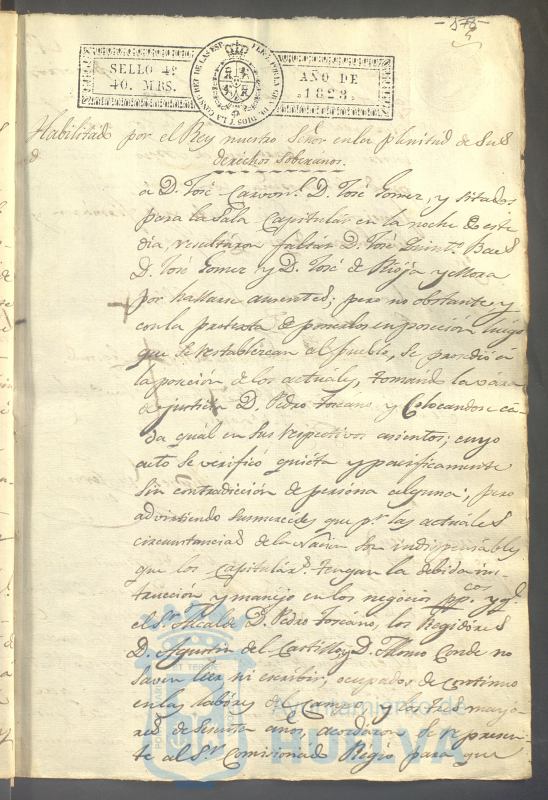 - 575 -
SELLO 4º
40. MRS.
AÑO DE
1823.
Habilitado por el Rey nuestro Señor en la plenitud de sus
derechos soberanos.
à D. José Carvon. D. José Gomez, y sitados
para la Sala Capitular en la noche de este
dia, resultaron faltar D. José Quint.º Baes
D. José Gomez y D. José de Rioja y Mora
por hallarse ausentes; pero no obstante y
con la protexta de ponerlos en posecion luego
que se restablezcan al pueblo, se prosedió à
la posecion de los actuales, tomando la vara
de justicia D. Pedro Toscano y Colocandose ca-
da qual en sus respectivos asientos; cuyo
acto se verificó quieta y pacificamente
sin contradiccion de persona alguna; pero
advirtiendo sus mercedes que p.r las actuales
circunstancias de la Nacion son indispensables
que los capitular.s tengan la debida ins-
truccion y manejo en los negocios pp.cos y q.e
el S.r Alcalde D. Pedro Toscano, los Regidores
D. Agustin del Castillo, y D. Alonso Conde no
saven leer ni escribir, ocupados de continuo
en las labores del Campo y los tres mayo-
res de sesenta años, acordaron se represen-
te al S.r Comisionado Regio para que
Ayuntamiento de
HUELVA